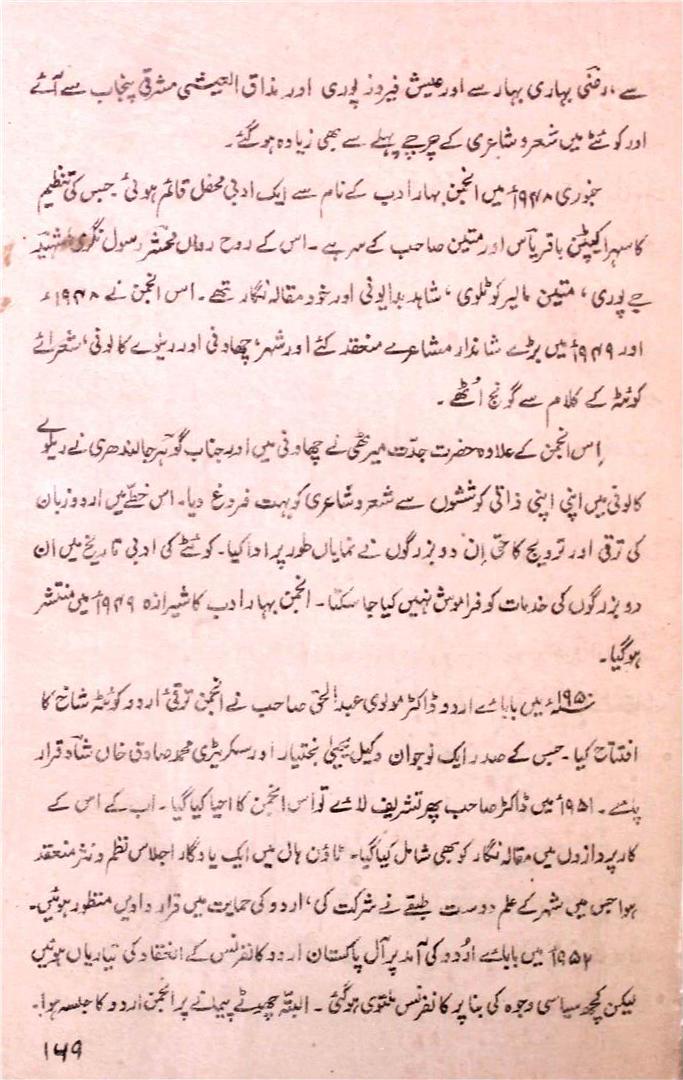 سے، رضی بہاری بہار سے اور عیش فیروز پوری اور مذاق العیشی مشرقی پنجاب سے آئے
اور کوئٹے میں شعر و شاعری کے چرچے پہلے سے بھی زیادہ ہو گئے۔
جنوری ۱۹۴۸ء میں انجمن بہار ادب کے نام سے ایک ادبی محفل قائم ہوئی جس کی تنظیم
کا سہرا کیپٹن باقر یاس اور متین صاحب کے سر ہے۔ اس کے روح رواں محشر رسول نگری،
جے پوری، متین مالیر کوٹلوی، شاہد بدایونی اور خود مقالہ نگار تھے۔ اس انجمن نے ۱۹۴۸ء
اور ۱۹۴۹ء میں بڑے شاندار مشاعرے منعقد کئے اور شہر، چھاونی اور ریلوے کالونی، شعرائے
کوئٹہ کے کلام سے گونج اُٹھے۔
اِس انجمن کے علاوہ حضرت جدّت میرٹھی نے چھاونی میں اور جناب گوہر جالندھری نے ریلوے
کالونی میں اپنی اپنی ذاتی کوششوں سے شعر و شاعری کو بہت فروغ دیا۔ اس خطّے میں اردو زبان
کی ترقی اور ترویج کا حق اِن دو بزرگوں نے نمایاں طور پر ادا کیا۔ کوئٹے کی ادبی تاریخ میں ان
دو بزرگوں کی خدمات کو فراموش نہیں کیا جا سکتا۔ انجمن بہار ادب کا شیرازہ ۱۹۴۹ء میں منتشر
ہو گیا۔
۱۹۵۰ء میں بابائے اردو ڈاکٹر مولوی عبدالحق صاحب نے انجمن ترقیٔ اردو کوئٹہ شاخ کا
افتتاح کیا۔ جس کے صدر ایک نوجوان وکیل یحییٰ بختیار اور سکریٹری محمد صادق خاں شاد قرار
پائے۔ ۱۹۵۱ء میں ڈاکٹر صاحب پھر تشریف لائے تو اُس انجمن کا احیا کیا گیا۔ اب کے اس کے
کارپردازوں میں مقالہ نگار کو بھی شامل کیا گیا۔ ٹاؤن ہال میں ایک یادگار اجلاس نظم و نثر منعقد
ہوا جس میں شہر کے علم دوست طبقے نے شرکت کی، اردو کی حمایت میں قراردادیں منظور ہوئیں۔
۱۹۵۲ء میں بابائے اُردو کی آمد پر آل پاکستان اردو کانفرنس کے انعقاد کی تیاریاں ہوئیں
لیکن کچھ سیاسی وجوہ کی بنا پر کانفرنس ملتوی ہو گئی۔ البتہ چھوٹے پیمانے پر انجمن اردو کا جلسہ ہوا۔
۱۶۹